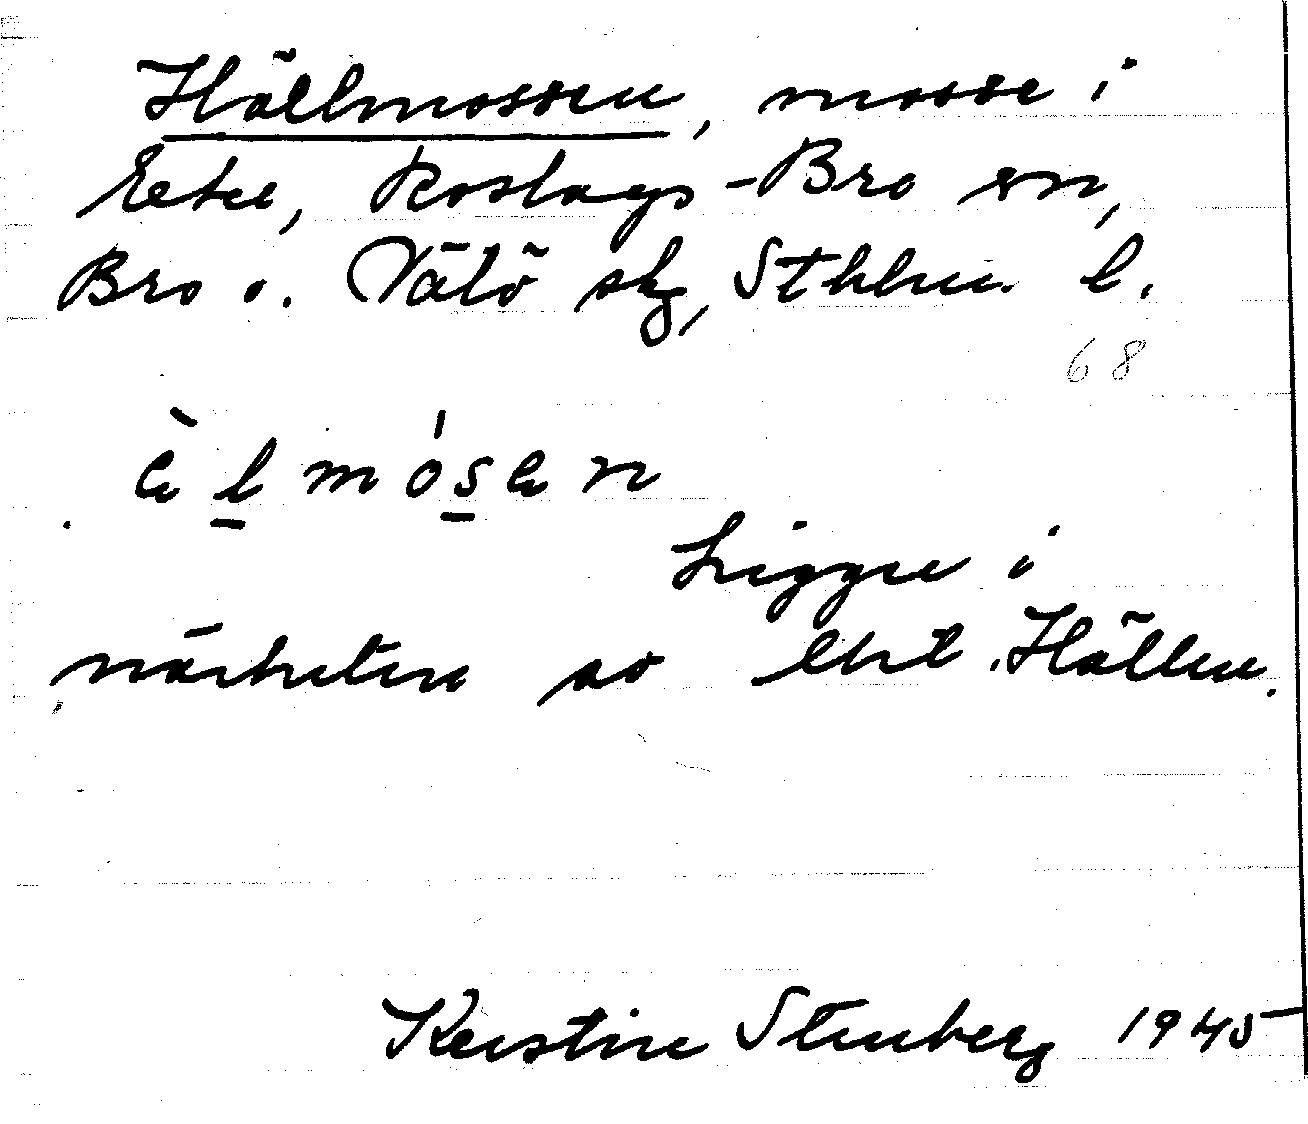 Hällmossen, mosse i
Eke, Roslags-Bro sn,
Bro o. Vätö skg, Sthlm. l.
68
àl mósan
Ligger i
närheten av lht. Hällen.
Kerstin Stenberg 1945